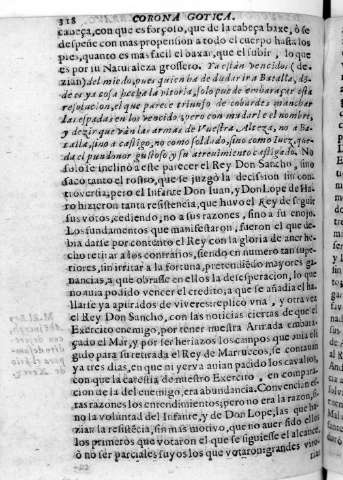 318 CORONA GOTICA.
cabeça, con que es forçolo, que de la cabeça baxe, ò se
despeñe con mas propension a todo el cuerpo hasta los
pies, quanto es mas facil el baxar, que el subir, lo que
es por su Naturaleza grossero. Ya están vencidos (de-
zian) del miedo, pues quien ha de dudar ir a Batalla, dō-
de es ya cosa hecha la vitoria, solo por de embaraçar esta
resolucion, el que parece triunfo de cobardes manchar
las espadas en los vencidos, pero con mudarle el nombre,
y dezir que vàn las armas de Vuestra Alteza, no a ba-
talla, sino a castigo, no como soldado, sino como Iuez, que-
da el pundonor gustoso y su atrevimiento castigado. No
solo se inclinò a este parecer el Rey Don Sancho, sino
sacò tanto el rostro, que se juzgò la decission sin con-
troversia; pero el Infante Don Iuan, y Don Lope de Ha-
ro hizieron tanta resistencia, que huvo el Rey de seguir
sus votos, cediendo, no a sus razones, sino a su enojo.
Los fundamentos que manifestaron, fueron el que de-
bia darse por contento el Rey con la gloria de aver he-
cho retirar a los contrarios, siendo en numero tan supe-
riores, sin irritar a la fortuna, pretendiēdo mayores ga-
nancias, a que obrasse en ellos la desesperacion, lo que
no avia podido vencer el credito, a que se añadia el ha-
llarse ya apirados de viveres: replicò vna, y otra vez
el Rey Don Sancho, con las noticias ciertas de que el
Exercito enemigo, por tener nuestra Armada embar-
gado el Mar, y por ser heriazos los campos que avia
gido para su retirada el Rey de Marruecos, se contavan
ya tres dias, en que ni yerva avian pacido los cavallos,
con que la carestia de nuestro Exercito, en compara-
cion de la del enemigo, era abundancia. Convencian es-
tas razones los entendimientos; pero no era la razon, si-
no la voluntad del Infante, y de Don Lope, las que ha-
zian la resistēcia, sin mas motivo, que no aver sido ellos
los primeros que votaron el que se siguiesse el alcance,
ò no ser parciales suyos los que votaron: grandes